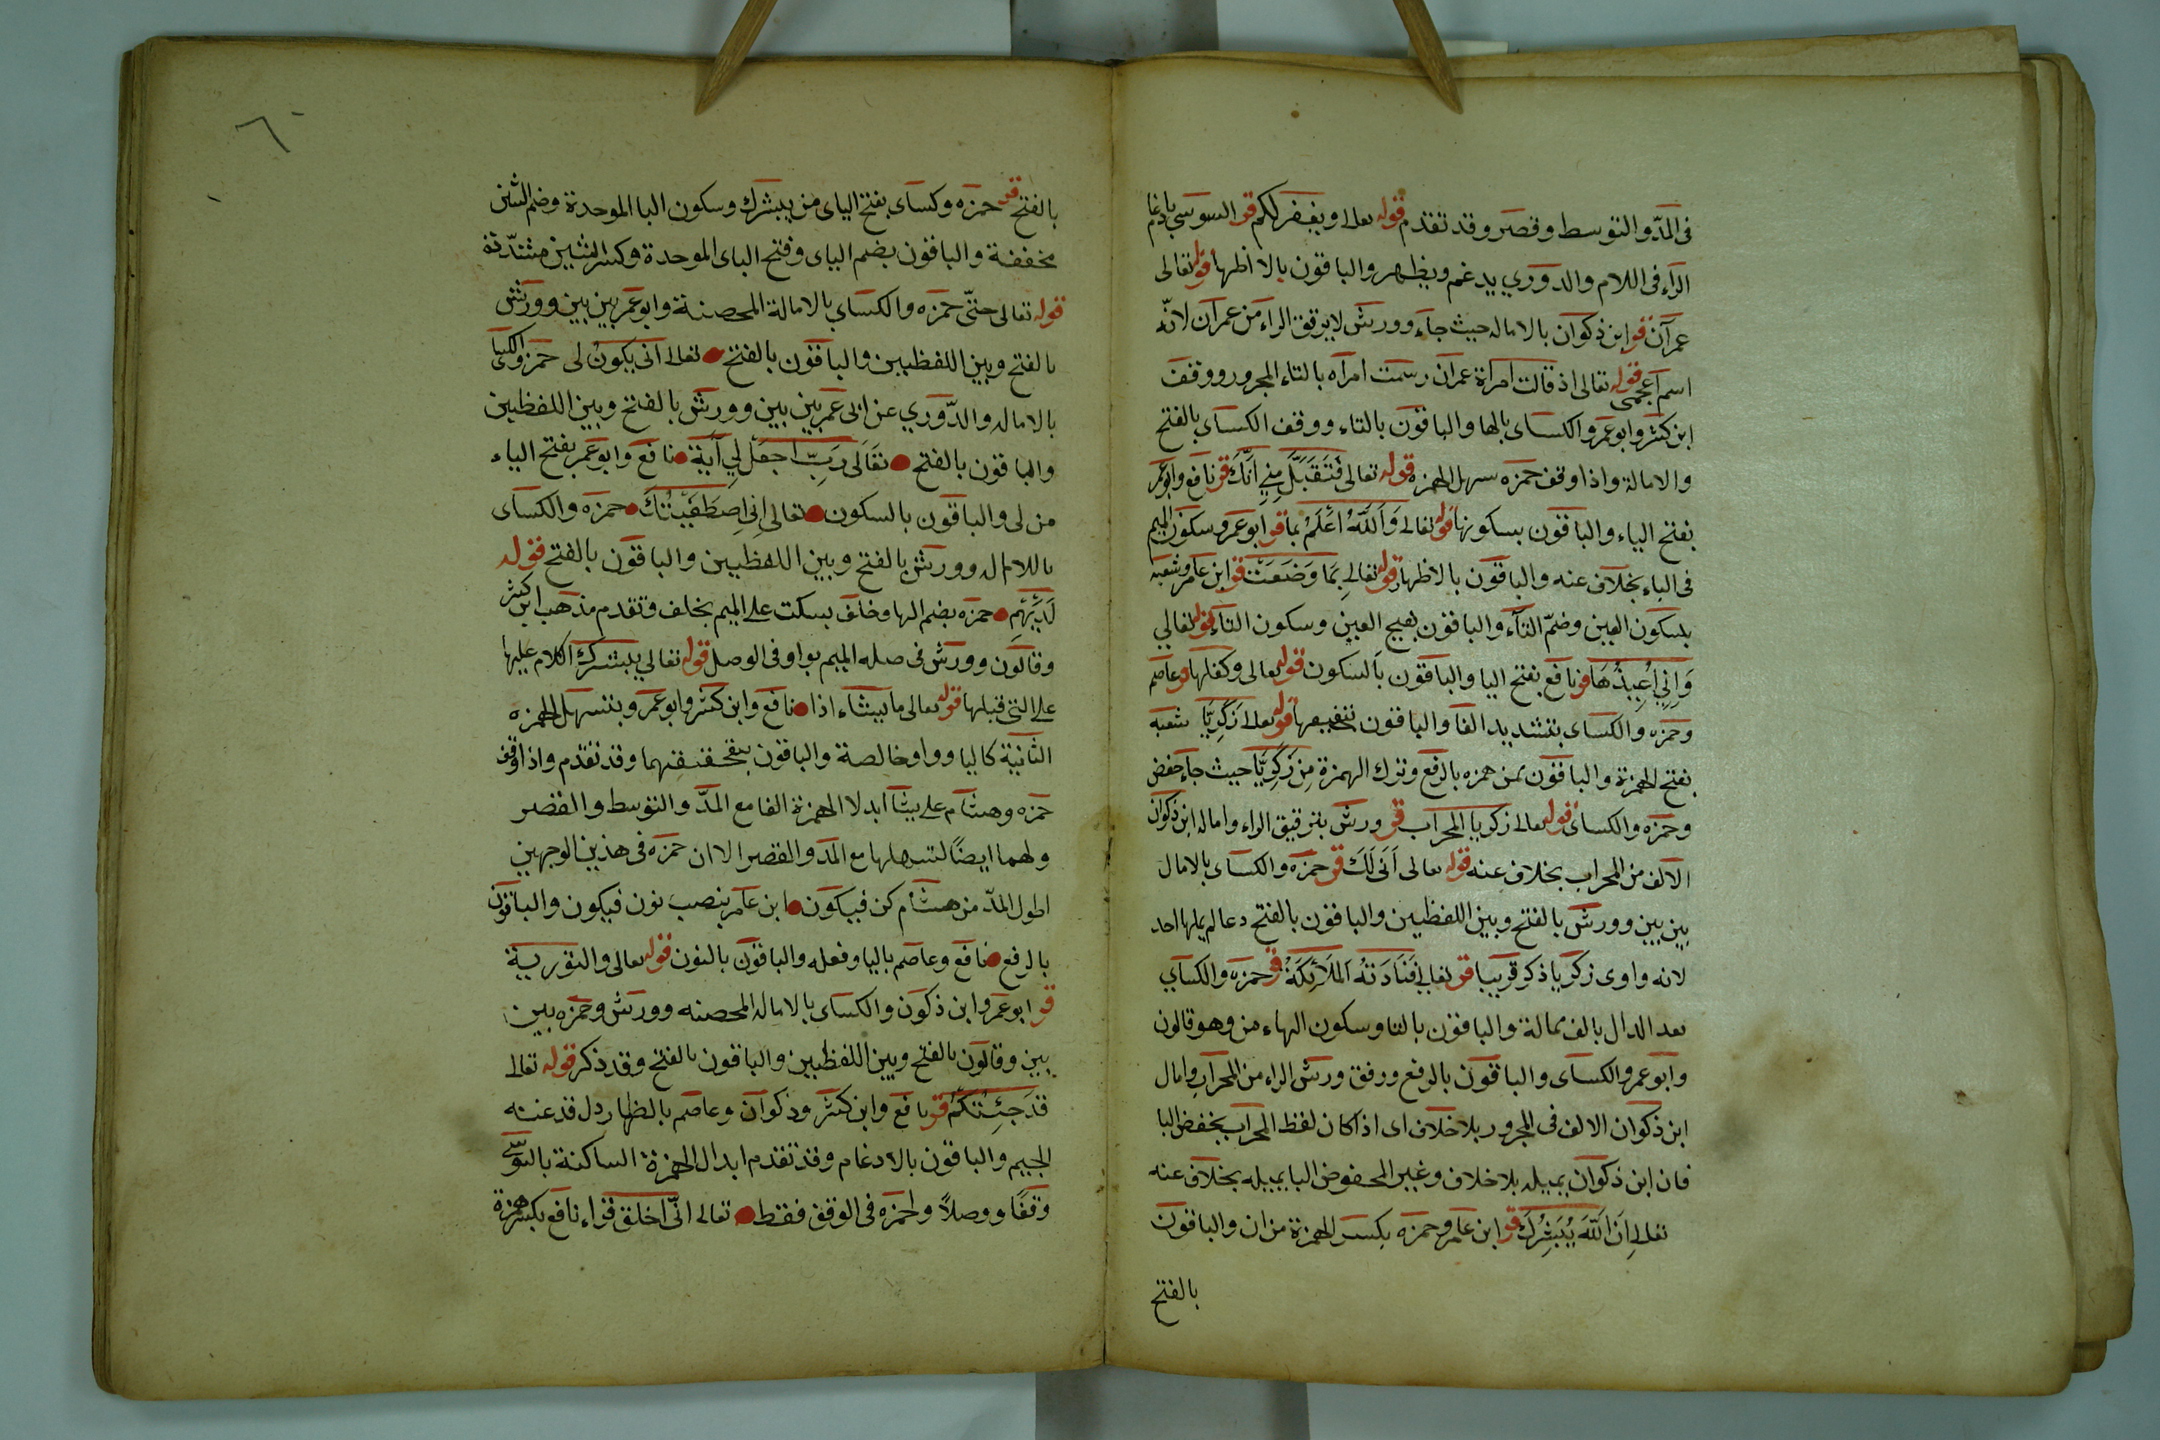 فى المدّ والتوسط وقصر وقد تقدم قوله تعالى ويغفر لكم قو السوسي بادغام
الراء فى اللام والدوري يدغم ويظهر والباقون بالاظهار قوله تعالى
عمرآن قو ابن ذكوان بالاماله حيث جاء وورش لا يرقق الراء من عمران لانّه
اسم اعجمى قوله تعالى اذ قالت امراة عمران رسمت امراه بالتاء المجرور ووقف
ابن كثير وابو عمرو الكساى بالها والباقون بالتاء ووقف الكساى بالفتح
والامالة واذا وقف حمزه سهل الهمزة قوله تعالى فَتَقَبَّلْ مِنِّي اِنَّكَ قو نافع وابو عمر
بفتح الياء والباقون بسكونها قوله تعالى وَاَللَّهُ اَعْلَمْ بما قو ابو عمرو سكون الميم
فى الباء بخلاف عنه والباقون بالاظهار قوله تعالى بِمَا وَضَعَتْ قو ابن عامر وشعبه
بسكون العين وضمّ التآء والباقون بفتح العين وسكون التاء قوله تعالي
وَاِنِّي اُعِيذُهَا قو نافع بفتح اليا والباقون بالسكون قوله تعالى وكفلها قو عاصم
وحمزه والكساى بتشديد الفا والباقون بتخفيفها قوله تعالى زَكَرِيَّا شعبه
بفتح الهمزة والباقون بمن همزه بالرفع وترك الهمزة من زَكَرِيَّا حيث جاء حفص
وحمزه والكساى قوله تعالى زكريا المحراب قو ورش بترقيق الراء واماله ابن ذكوان
الالف من المحراب بخلاف عنه قوله تعالى اَنَى لَكَ قو حمزه والكساى بالامال
بين بين وورش بالفتح وبين اللفظين والباقون بالفتح دعا لم يملها احد
لانه واوى زكريا ذكر قريبا قو تعالى فَنَادَتْهُ الْمَلَائِكَةُ قو حمزه والكساي
بعد الدال بالف ممالة والباقون بالتا وسكون الهاء من وهو قالون
وابو عمرو الكساى والباقون بالرفع ورقق ورش الراء من المحراب وامال
ابن ذكوان الالف فى المجرور بلا خلاف اى اذا كان لفظ المحراب بخفض البا
فان ابن ذكوان يميله بلا خلاف وغير المخفوض البا يميله بخلاف عنه
تعالى اِنَ اللَّهَ يُبَشِّرُكَ قو ابن عامر وحمزه بكسر الهمزة من ان والباقون
بالفتح
بالفتح قو حمزه وكساى بفتح الياى من يبشرك وسكون البا الموحدة وضم الشين
مخففة والباقون بضم الياى وفتح الباى الموحدة وكسر الشين مشدّدة
قوله تعالى حتّى حمزه والكساي بالامالة المحضنة وابو عمر بين بين وورش
بالفتح وبين اللفظين والباقون بالفتح تعالى انى يكون لى حمزه والكساى
بالاماله والدّوري عن ابى عمر بين بين وورش بالفتح وبين اللفظين
والباقون بالفتح تعَالَى رَبِّ اجعَلْ لِي آيَة نافع وابو عمر بفتح الياء
من لى والباقون بالسكون تعالى اِنِى اصْطَفَيْتُكَ حمزه والكساى
باللاماله وورش بالفتح وبين اللفظين والباقون بالفتح قوله
لَدَيْهِم حمزه بضم الها وخلف بسكت على الميم بخلف وتقدم مذهب ابن كثير
وقالون وورش فى صله الميم بواو فى الوصل قوله تعالي يبشرك الكلام عليها
على التى قبلها قوله تعالى ما يشاء اذا نافع وابن كثير وابو عمر وبتسهل الهمزه
الثانية كاليا وواو خالصة والباقون بتحقيقهما وقد تقدم واذا وقف
حمزه وهشام على يشا ابدلا الهمزة الفا مع المدّ والتوسط والقصر
ولهما ايضًا لتسهلها مع المد والقصر الا ان حمزه فى هذين الوجهين
اطول المدّ من هشام كن فيكون ابن عامر بنصب نون فيكون والباقون
بالرفع نافع وعاصم باليا وفعله والباقون بالنون قوله تعالى والتورية
قو ابو عمرو ابن ذكون والكساى بالاماله المحضنه وورش وحمزه بين
بين وقالون بالفتح وبين اللفظين والباقون بالفتح وقد ذكر قوله تعالى
قد جئتكم قو نافع وابن كثير وذكوان وعاصم بالظهار دل قد عنه
الجيم والباقون بالادغام وقد تقدم ابدال الهمزة الساكنة بالسوسى
وقفًا ووصلاً ولحمزه فى الوقف فقط تعالى انّى اخلق قراء نافع بكسر همزة